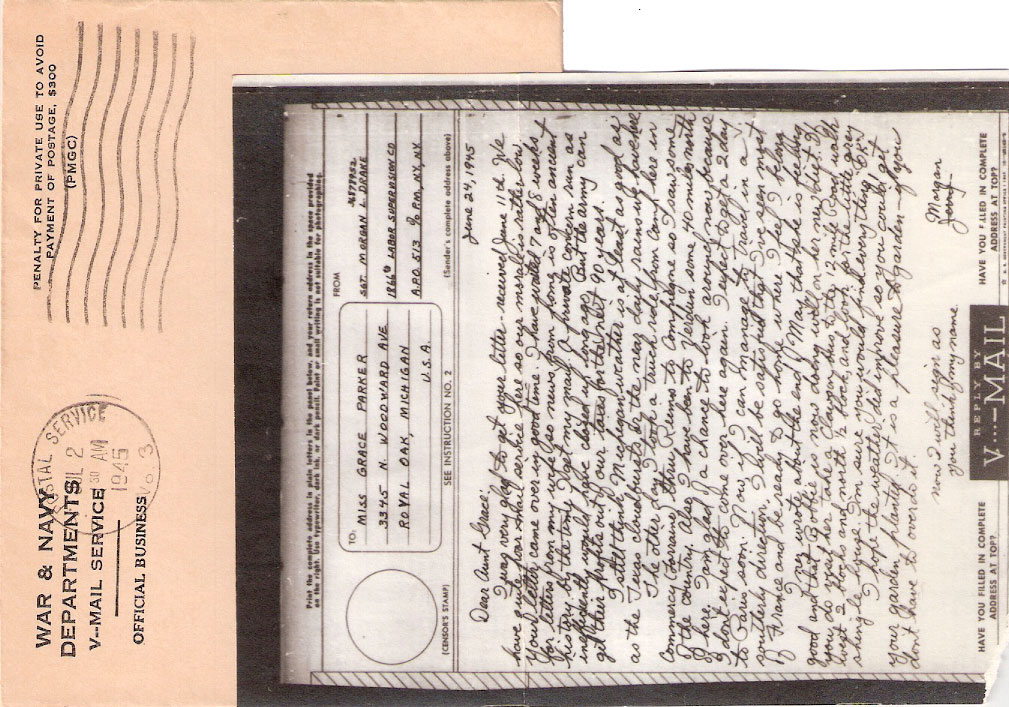 WAR & NAVY
DEPARTMENTS
V--MAIL SERVICE
OFFICIAL BUSINESS
POSTAL SERVICE
JUL 2
30 AM
1945
No. 3
PENALTY FOR PRIVATE USE TO AVOID
PAYMENT OF POSTAGE, $300
(PMGC)
Print the complete address in plain letters in the panel below, and your return address in the space provided
on the right. Use typewriter, dark ink, or dark pencil. Faint or small writing is not suitable for photographing.
TO:
MISS GRACE PARKER
3345 N. WOODWARD AVE
ROYAL OAK, MICHIGAN
U.S.A.
FROM
SGT. MORGAN L. DRAKE
1866th LABOR SUPERVISION CO
A.P.O. 513 % P.M., NY, NY
(CENSOR'S STAMP)
SEE INSTRUCTION NO. 2
(Sender's complete address above)
June 24, 1945
Dear Aunt Grace:
I was very glad to get your letter received June 11th. We
have quite poor mail service here so our morale is rather low.
Your letter came over in good time. I have waited 7 and 8 weeks
for letters from my wife so news given fong is often ancient
history by the time I get my mail. A private concern run as
inefficiently would have closed up long ago. But the army can
get their profits out of our taxes for the next 90 years.
I still think Michigan weather is at least as good as
the Texas cloudbursts by the near daily rains we have here
The other day I took a truck ride from Camp here in
Commercy torraine thru Reims to Compiegne so I saw some
of the country. Also I have been to Verdun some 40 miles north
of here. I am glad of a chance to look around now because
I dont expect to come over here again. I expect to get a 2 day
to Paris soon. Now if I can manage to travel in a
southerly direction, I will be satisfied that I've seen most
of France and be ready to go home where I belong.
Fay wrote about the end of May that she is feeling
good and that Bobbie is now doing well on her new diet. If
you do go to see her take a Clawson bus to the 12 mile Road walk
west 2 blocks and north 1/2 block, and look for the little grey
shingle house. I'm sure you would find everything "OK".
I hope the weather did improve so you could get
your garden planted. It is a pleasure to garden - if you
don't have to overdo it.
now I will sign as
you think of my name
Morgan
HAVE YOU FILLED IN COMPLETE
ADDRESS AT TOP?
REPLY BY
V···-MAIL
HAVE YOU FILLED IN COMPLETE
ADDRESS AT TOP?